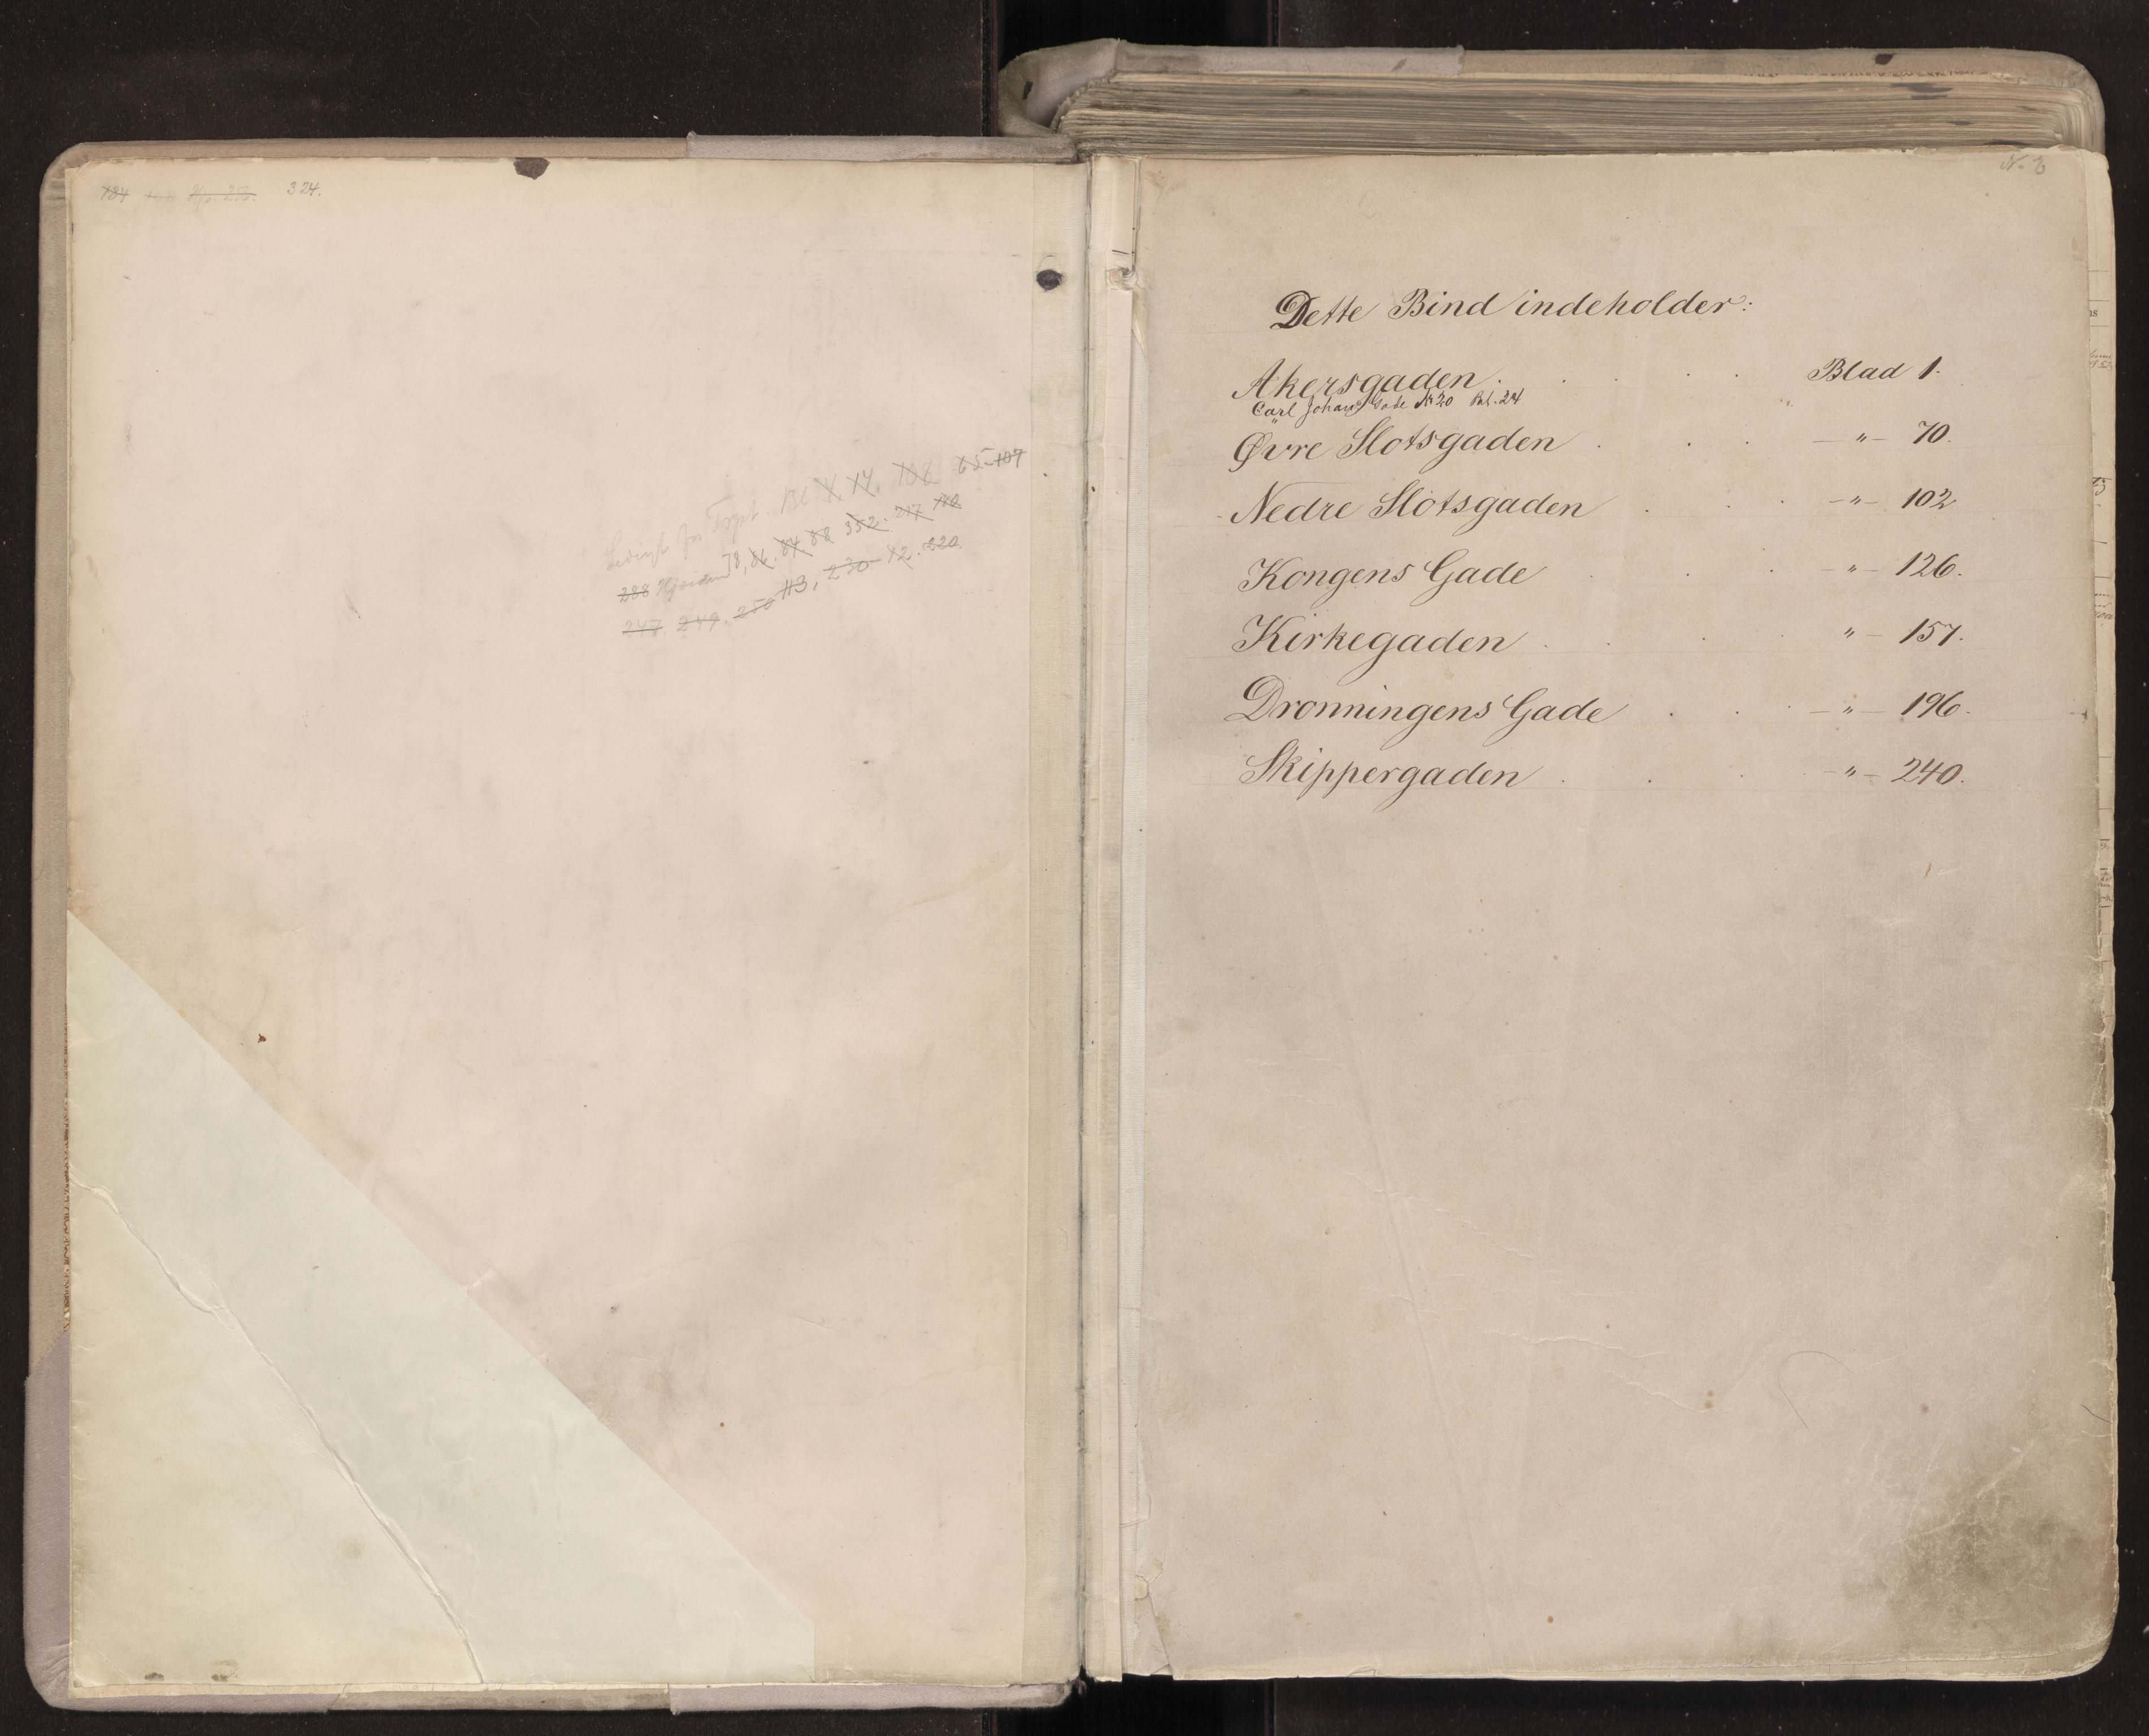 324.
Bl.
65-107
78, 86. 84 88 352. 217
247. 249. 250 113, 230 220.
Dette Bind indeholder:
Akersgaden . . . . Blad 1.
Carl Johans Gade No 20 Bl. 24
Øvre Slotsgaden . . . — " — 70.
Nedre Slotsgaden . . . — " — 102
Kongens Gade . . . — " — 126.
Kirkegaden . . . " — 157.
Dronningens Gade . . . — " — 196.
Skippergaden . . . — " — 240.